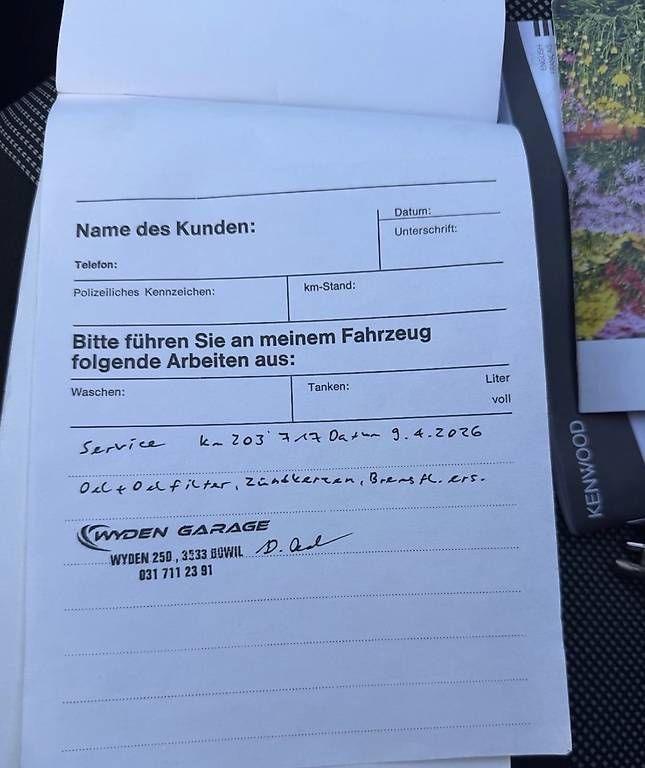 ENGLISH
FRANÇAIS
Name des Kunden:
Datum:
Unterschrift:
Telefon:
Polizeiliches Kennzeichen:
km-Stand:
Bitte führen Sie an meinem Fahrzeug
folgende Arbeiten aus:
Waschen:
Tanken:
Liter
voll
Service km 203'717 Datum 9.4.2026
Oel + Oelfilter, Zündkerzen, Bremsfl. ers.
WYDEN GARAGE
WYDEN 250, 3533 BOWIL
031 711 23 91
KENWOOD